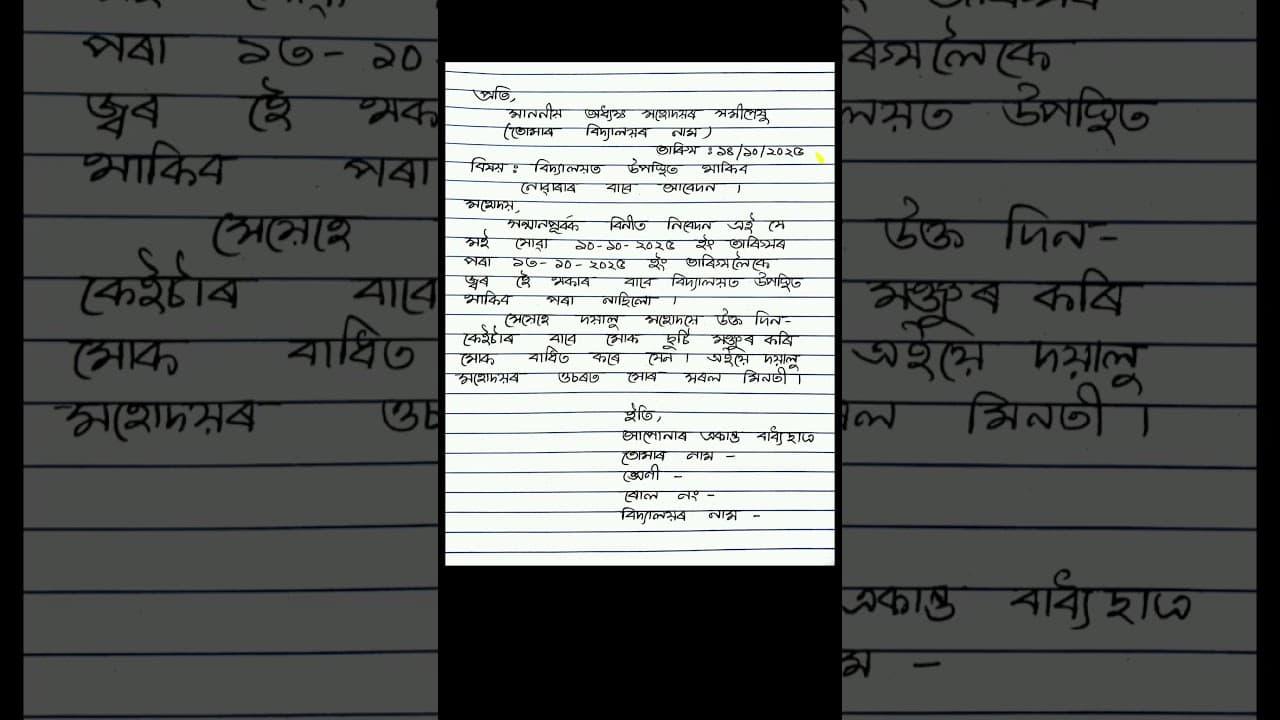 প্ৰতি,
মাননীয় অধ্যক্ষ মহোদয়ৰ সমীপেষু
(তোমাৰ বিদ্যালয়ৰ নাম)
তাৰিখ : ১৪/১০/২০২৫
বিষয় : বিদ্যালয়ত উপস্থিত থাকিব
নোৱাৰাৰ বাবে আবেদন ।
মহোদয়,
সন্মানপূৰ্বক বিনীত নিবেদন এই যে
মই যোৱা ১০-১০-২০২৫ ইং তাৰিখৰ
পৰা ১৩-১০-২০২৫ ইং তাৰিখলৈকে
জ্বৰ হৈ থকাৰ বাবে বিদ্যালয়ত উপস্থিত
থাকিব পৰা নাছিলো ।
সেয়েহে দয়ালু মহোদয়ে উক্ত দিন-
কেইটাৰ বাবে মোক ছুটি মঞ্জুৰ কৰি
মোক বাধিত কৰে যেন । এইয়ে দয়ালু
মহোদয়ৰ ওচৰত মোৰ সৰল মিনতী ।
ইতি,
আপোনাৰ একান্ত বাধ্য ছাত্ৰ
তোমাৰ নাম -
শ্ৰেণী -
ৰোল নং -
বিদ্যালয়ৰ নাম -